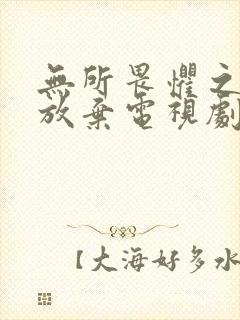 無所畏懼之
放棄電視劇
【大海好多水